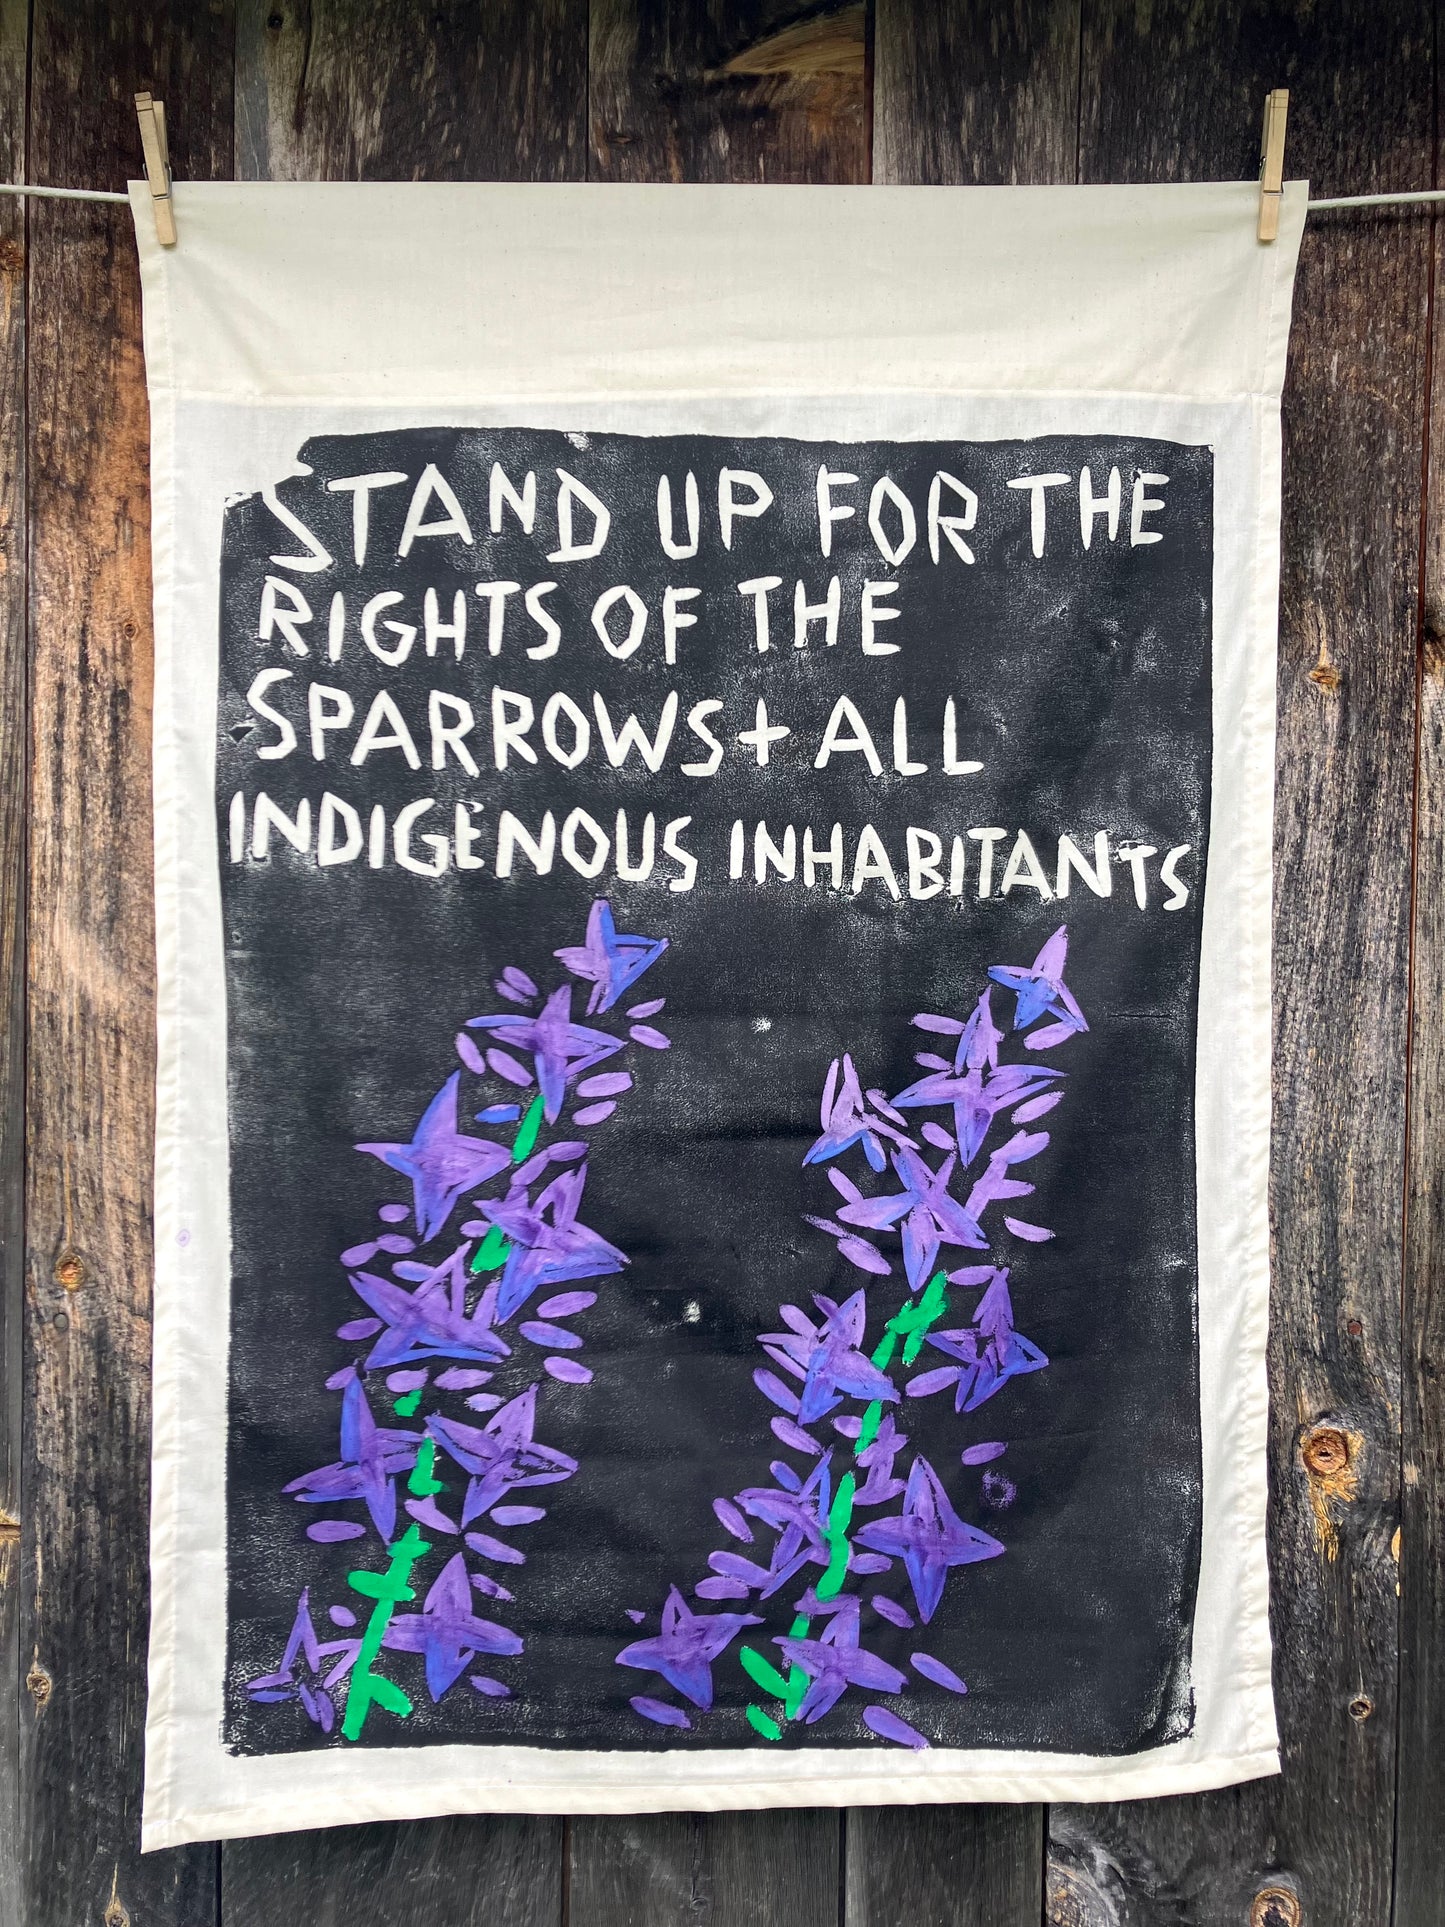 STAND UP FOR THE
RIGHTS OF THE
SPARROWS + ALL
INDIGENOUS INHABITANTS